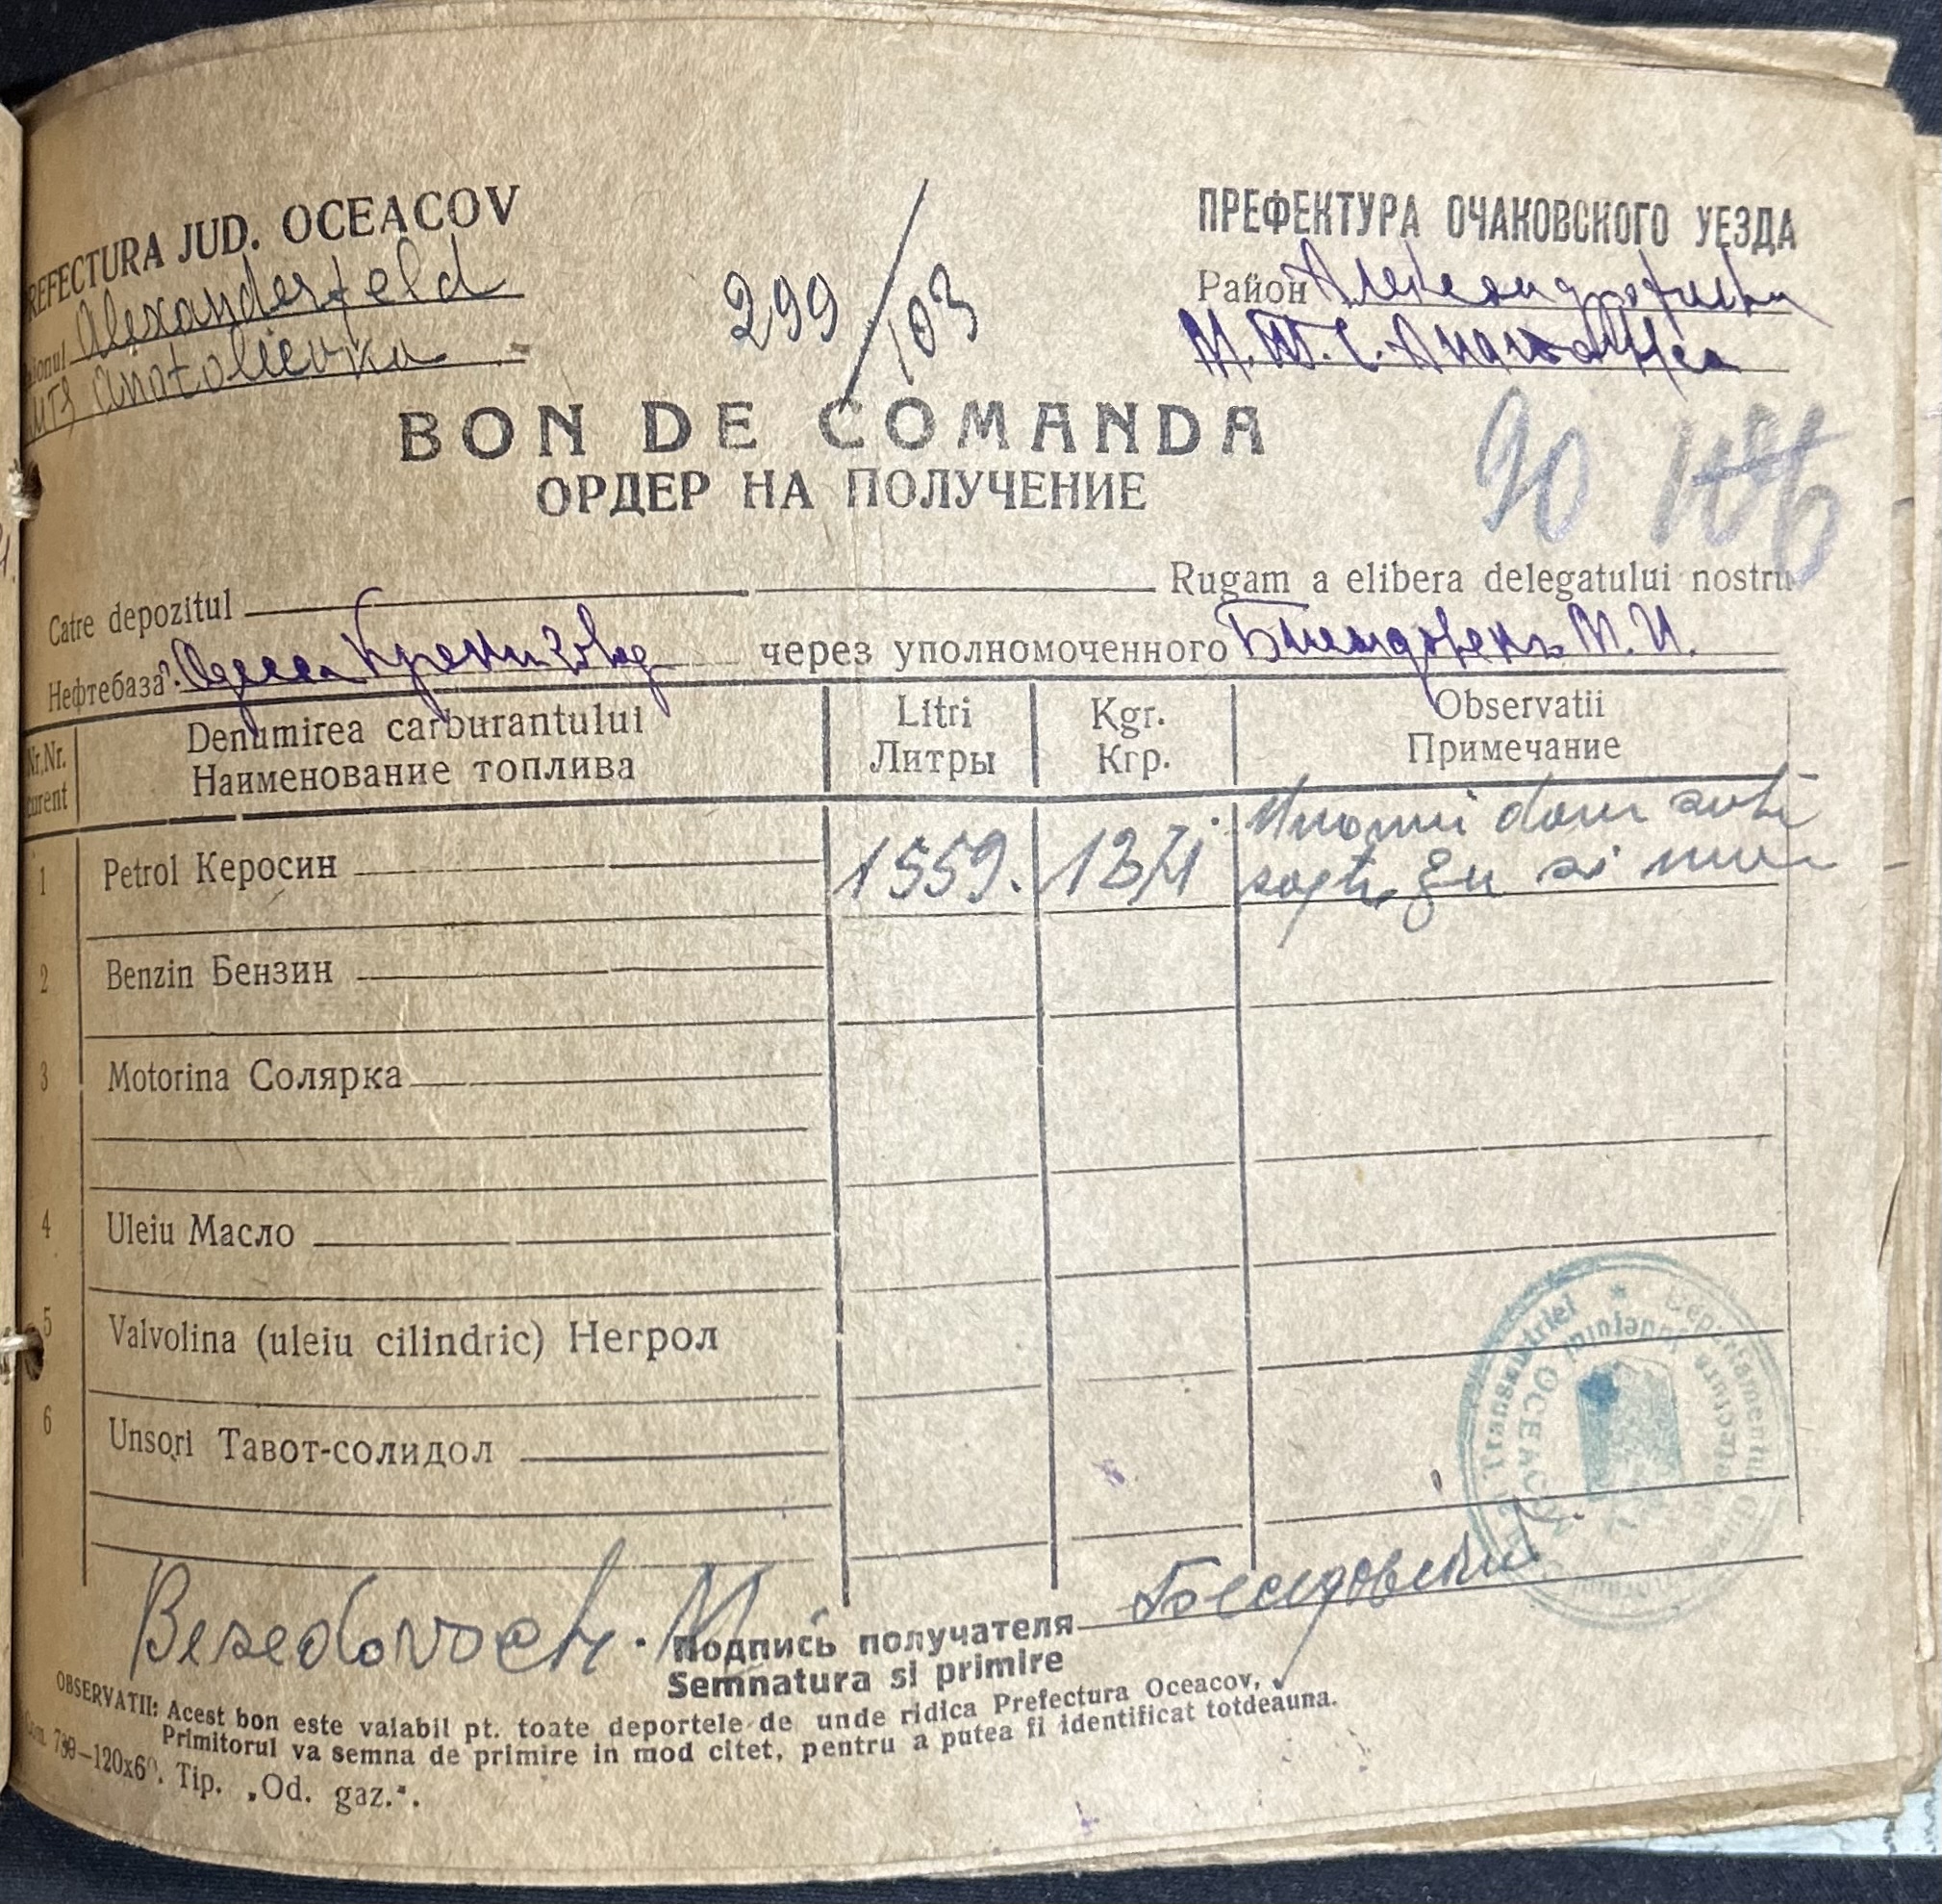 REFECTURA JUD. OCEACOV
ПРЕФЕКТУРА ОЧАКОВСКОГО УЕЗДА
aionul Alexanderfeld
Район
MTS Anatolievka
М.Т.С.
299/103
BON DE COMANDA
ОРДЕР НА ПОЛУЧЕНИЕ
90 106
Catre depozitul Rugam a elibera delegatului nostru
Нефтебаза: Одесса через уполномоченного М.И.
Nr.Nr. curent
Denumirea carburantului
Наименование топлива
Litri
Литры
Kgr.
Кгр.
Observatii
Примечание
1 Petrol Керосин 1559. 1371
2 Benzin Бензин
3 Motorina Солярка
4 Uleiu Масло
5 Valvolina (uleiu cilindric) Негрол
6 Unsori Тавот-солидол
Besedovsch. M
Подпись получателя Беседовский
Semnatura si primire
OBSERVATII: Acest bon este valabil pt. toate deportele de unde ridica Prefectura Oceacov,
Primitorul va semna de primire in mod citet, pentru a putea fi identificat totdeauna.
730—120x60. Tip. „Od. gaz.".